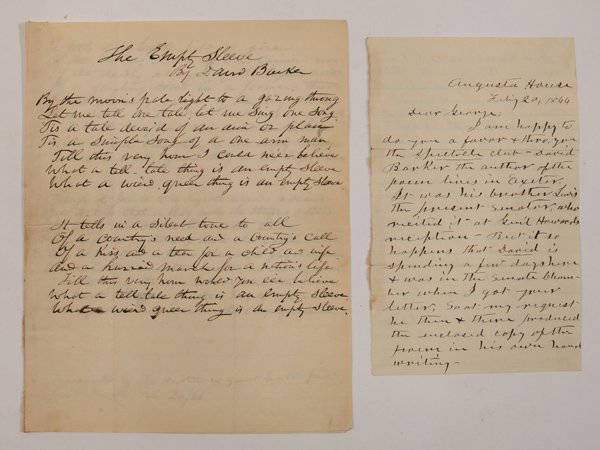 The Empty Sleeve
By David Barker
By the moon's pale light to a gazing throng
Let me tell one tale, let me sing one song
Tis a tale devoid of an aim or plan
Tis a simple song of a one arm man
Till this very hour I could neer believe
What a tell-tale thing is an empty sleeve
What a weird queer thing is an empty sleeve
It tells in a silent tone to all
Of a country's need and a country's call
Of a kiss and a tear for a child and wife
and a hurried march for a nation's life
Till this very hour would you eer believe
What a tell tale thing is an empty sleeve
What a weird queer thing is an empty sleeve
Augusta House
Feby 20, 1864
Dear George,
I am happy to
do you a favor & thro, you
the Spectacle Club - David
Barker the author of the
poem lives in Exeter.
It was his brother Lewis
the present Senator, who
recited it at Genl Howards
reception - But it so
happens that David is
spending a few days here
& was in the Senate Cham-
ber when I got your
letter, so at my request
he then & there produced
the enclosed copy of the
poem in his own hand
writing -